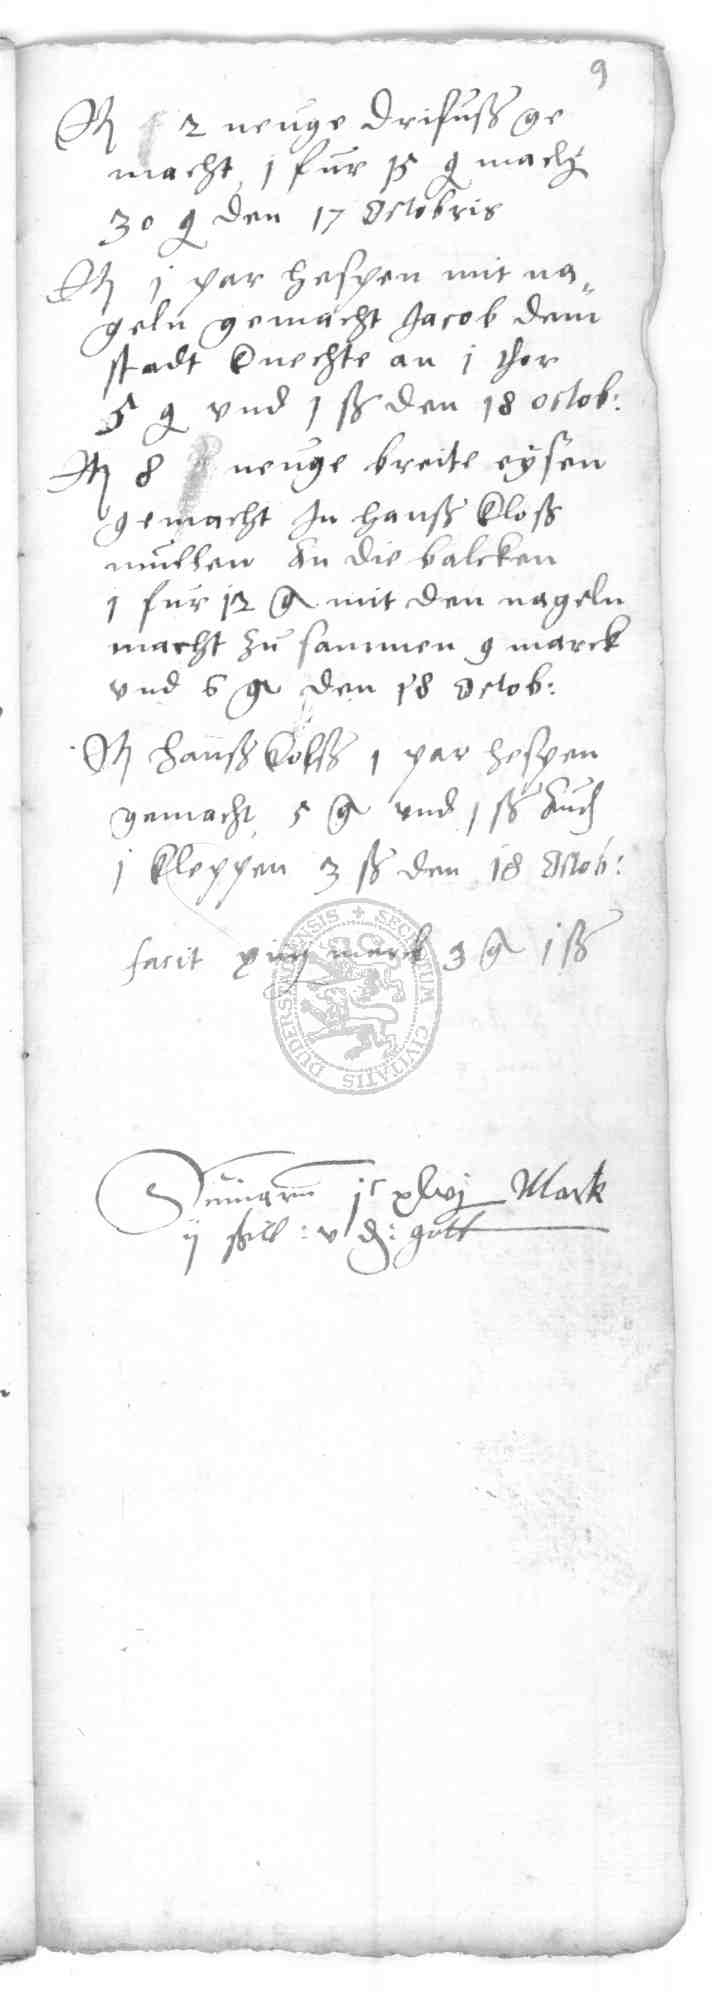 9
It 2 neuge drifuß ge
macht 1 fur 15 g macht
30 g den 17 Octobris
It j par hespen mit na„
geln gemacht Jacob dem
stadt knechte an j thor
5 g vnd 1 ß den 18 octob:
It 8 neuge breite eysen
gemacht In hanß Kloß
mullen an die balcken
1 fur 12 g mit den nageln
macht zu sammen 9 marck
vnd 6 g den 18 Octob:
It hanß 1 par hespen
gemacht 5 g vnd 1 ß Auch
j kleppen 3 ß den 18 Octob:
facit marck 3 g j ß
SECRETUM CIVITATIS DUDERSTADENSIS
Summarum jc xlvj Mark
ij ßill: v d: gott